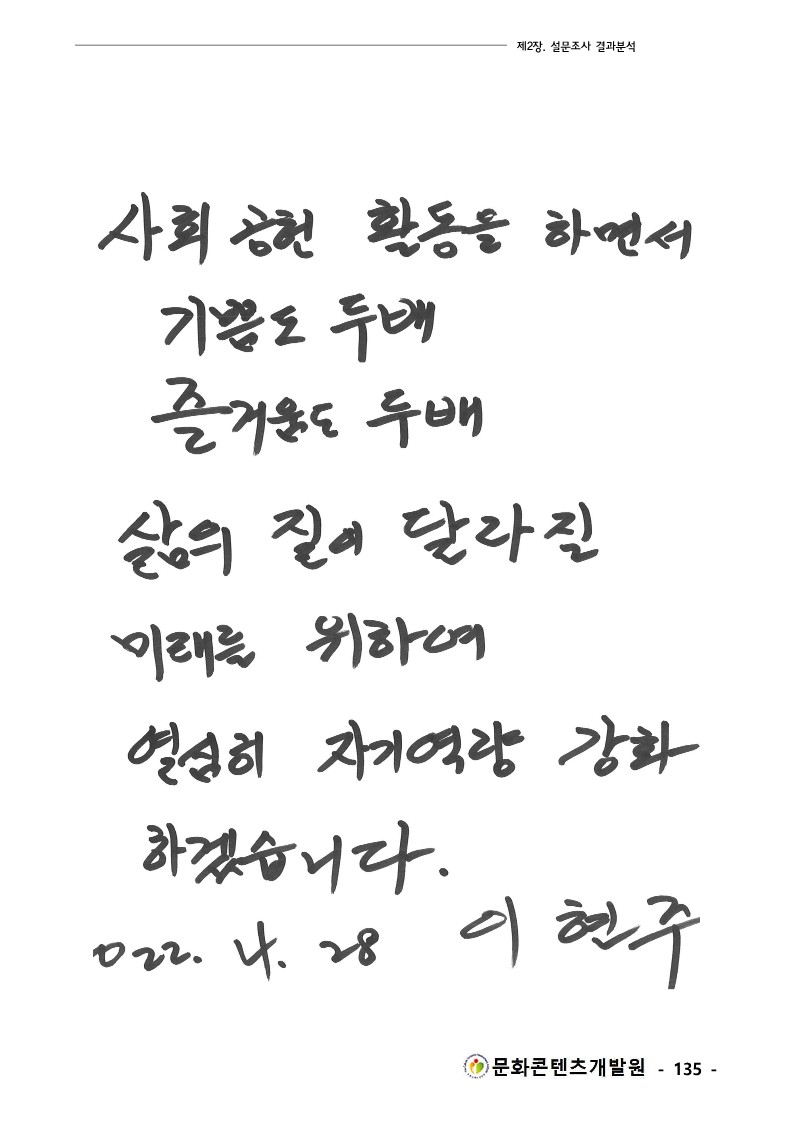 제2장. 설문조사 결과분석
사회 공헌 활동을 하면서
기쁨도 두배
즐거움도 두배
삶의 질이 달라질
미래를 위하여
열심히 자기역량 강화
하겠습니다.
022. 4. 28 이현주
문화콘텐츠개발원 - 135 -